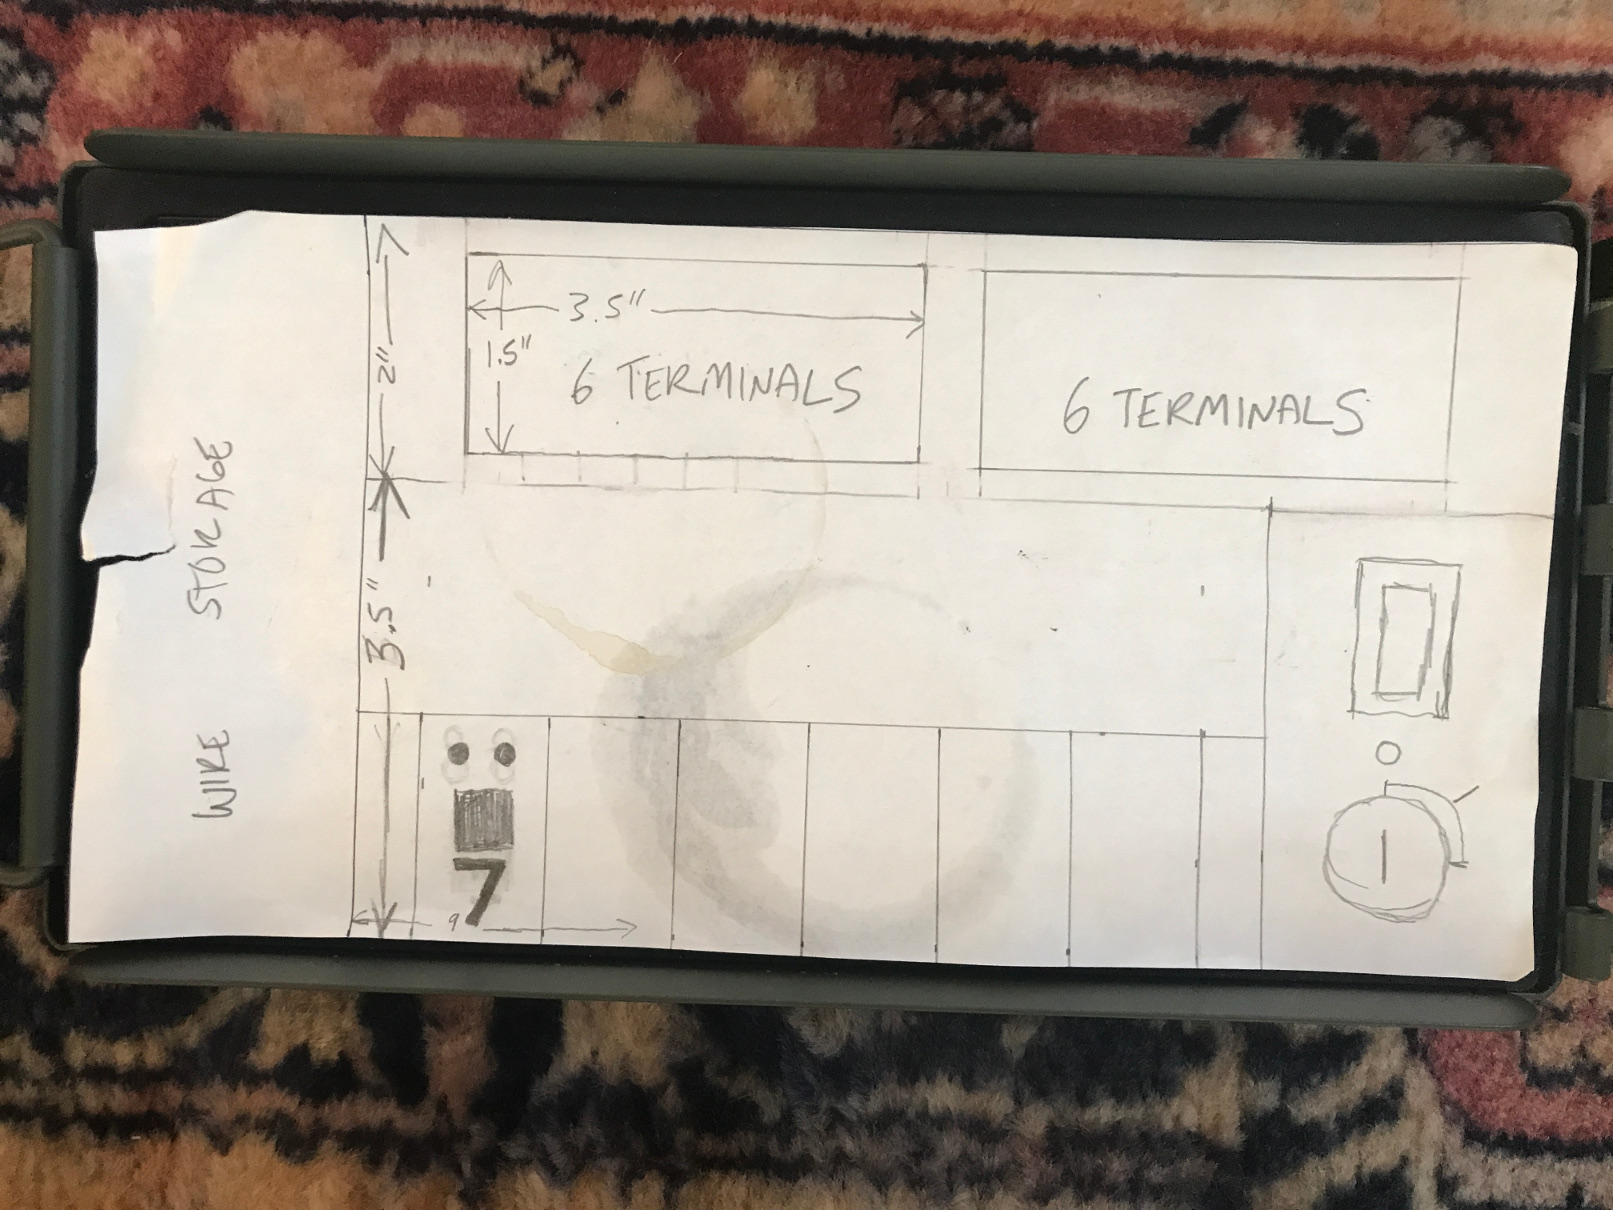 WIRE STORAGE
2"
3.5"
3.5"
1.5"
6 TERMINALS
6 TERMINALS
7
9